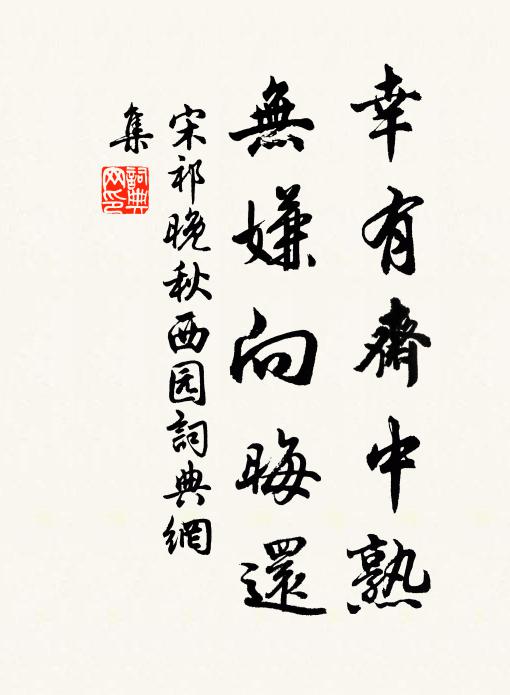 幸有齋中熟
無嫌向晦還
宋祁晚秋西园詞典網
集
詞典網印